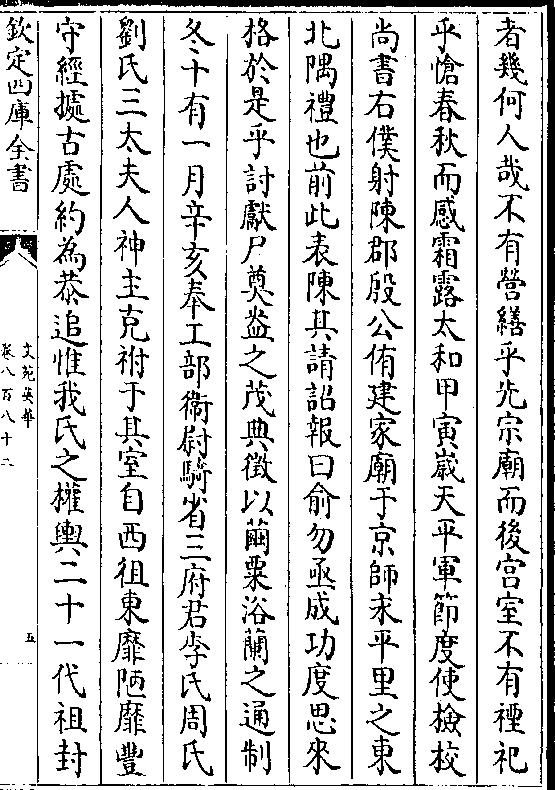 者幾何人哉不有營繕乎先宗廟而後宫室不有禋祀
乎愴春秋而感霜露太和甲寅嵗天平軍節度使檢校
尚書右僕射陳郡殷公侑建家廟于京師永平里之東
北隅禮也前此表陳其請詔報曰俞勿亟成功度思來
格於是乎討獻尸奠盎之茂典徵以繭栗浴蘭之通制
冬十有一月辛亥奉工部衛尉騎省三府君李氏周氏
劉氏三太夫人神主克祔于其室自西徂東靡陋靡豐
守經據古處約為恭追惟我氏之權輿二十一代祖封
欽定四庫全書
文苑英華
卷八百八十二
五